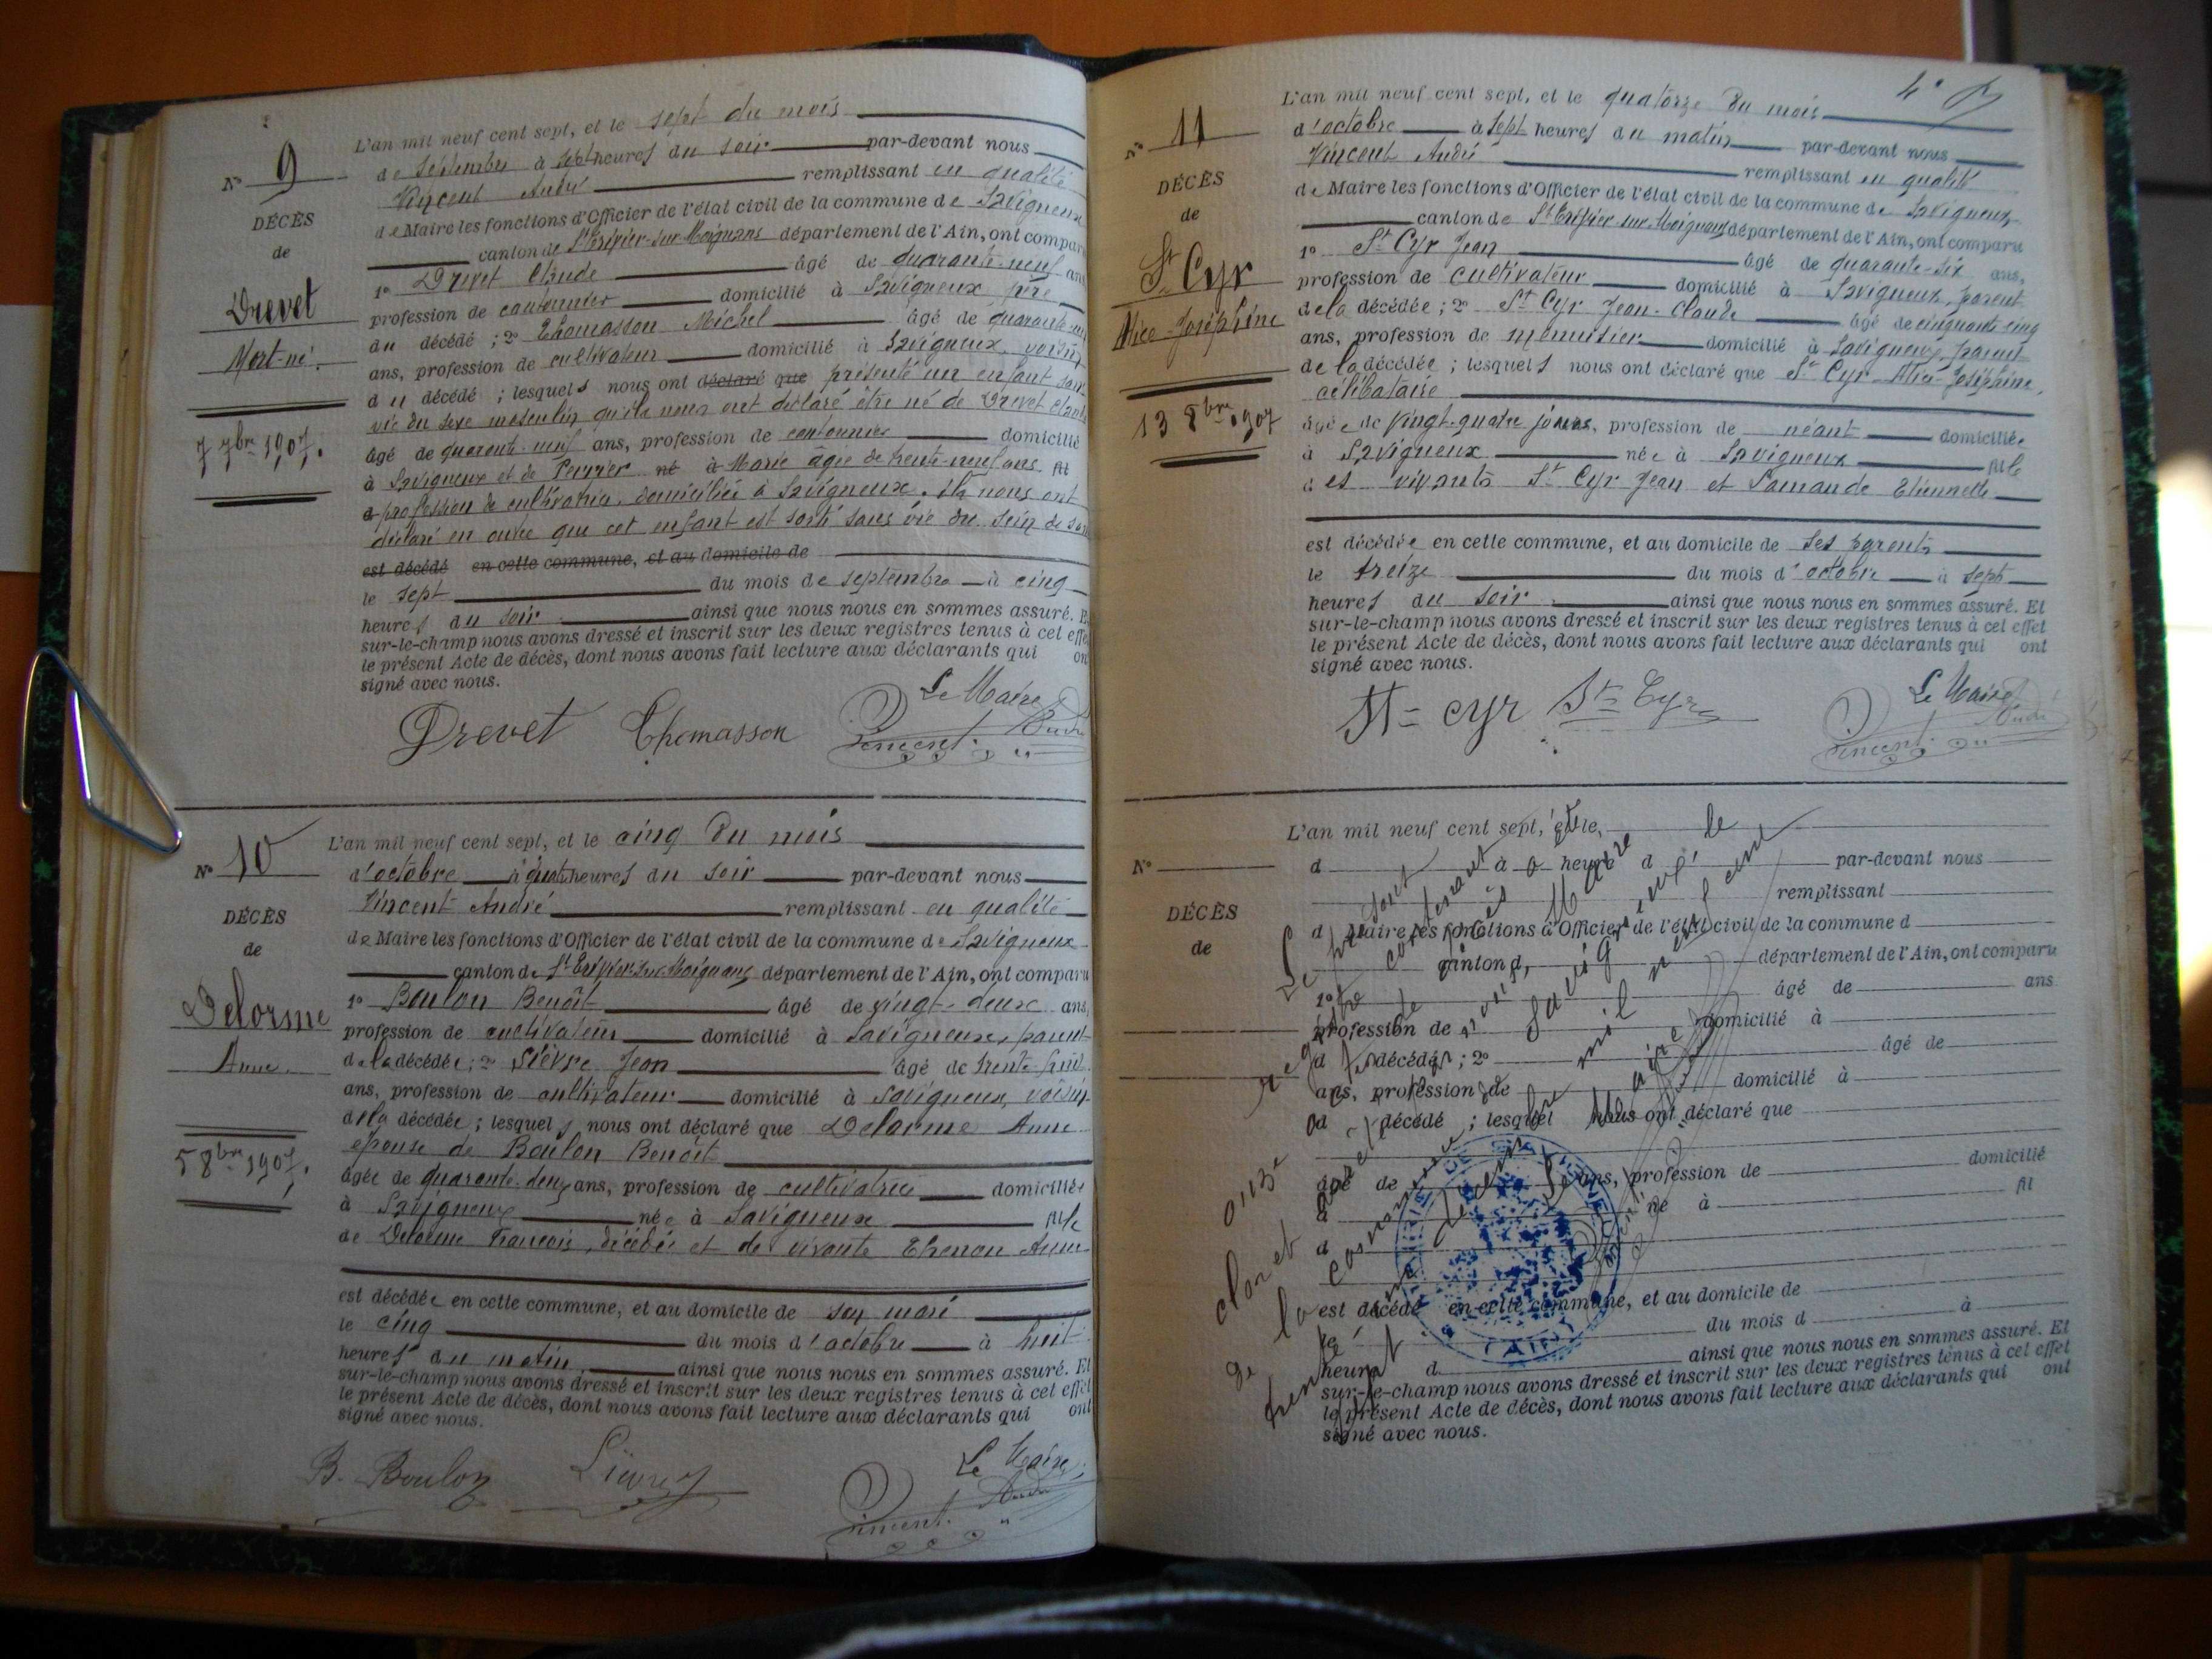 N° 9
DÉCÈS
de
Drevet
Mort-né.
7 7bre 1907.
L'an mil neuf cent sept, et le sept du mois
de septembre à sept heures du soir par-devant nous
Vincent André remplissant en qualité
de Maire les fonctions d'Officier de l'état civil de la commune de Savigneux
canton de St Trivier-sur-Moignans département de l'Ain, ont comparu
1° Drevet Claude âgé de quarante-neuf ans
profession de cantonnier domicilié à Savigneux, père
du décédé ; 2° Thomasson Michel âgé de quarante
ans, profession de cultivateur domicilié à Savigneux, voisin
du décédé ; lesquels nous ont déclaré que présenté un enfant sans
vie du sexe masculin qu'ils nous ont déclaré être né de Drevet Claude
âgé de quarante-neuf ans, profession de cantonnier domicilié
à Savigneux et de Perrier né à Marie âgée de trente-neuf ans fil
d profession de cultivatrice, domiciliée à Savigneux. Ils nous ont
déclaré en outre que cet enfant est sorti sans vie du sein de sa
est décédé en cette commune, et au domicile de
le sept du mois de septembre à cinq
heures du soir ainsi que nous nous en sommes assuré. E
sur-le-champ nous avons dressé et inscrit sur les deux registres tenus à cet effe
le présent Acte de décès, dont nous avons fait lecture aux déclarants qui on
signé avec nous.
Drevet Thomasson Le Maire
Vincent André
N° 10
DÉCÈS
de
Delorme
Anne.
5 8bre 1907.
L'an mil neuf cent sept, et le cinq du mois
d'octobre à quatre heures du soir par-devant nous
Vincent André remplissant en qualité
de Maire les fonctions d'Officier de l'état civil de la commune de Savigneux
canton de St Trivier-sur-Moignans département de l'Ain, ont comparu
1° Boulon Benoît âgé de vingt-deux ans,
profession de cultivateur domicilié à Savigneux, parent
de la décédée ; 2° Lièvre Jean âgé de trente-huit
ans, profession de cultivateur domicilié à Savigneux, voisin
de la décédée ; lesquels nous ont déclaré que Delorme Anne
épouse de Boulon Benoît
âgée de quarante-deux ans, profession de cultivatrice domiciliée
à Savigneux née à Savigneux fille
de Delorme François, décédé et de vivante Thenon Anne
est décédée en cette commune, et au domicile de son mari
le cinq du mois d'octobre à huit
heures du matin ainsi que nous nous en sommes assuré. Et
sur-le-champ nous avons dressé et inscrit sur les deux registres tenus à cet effet
le présent Acte de décès, dont nous avons fait lecture aux déclarants qui ont
signé avec nous.
B. Boulon Lièvre Le Maire
Vincent André
4e
N° 11
DÉCÈS
de
St Cyr
Alice-Joséphine
13 8bre 1907
L'an mil neuf cent sept, et le quatorze du mois
d'octobre à sept heures du matin par-devant nous
Vincent André remplissant en qualité
de Maire les fonctions d'Officier de l'état civil de la commune de Savigneux
canton de St Trivier-sur-Moignans département de l'Ain, ont comparu
1° St Cyr Jean âgé de quarante-six ans,
profession de cultivateur domicilié à Savigneux, parent
de la décédée ; 2° St Cyr Jean-Claude âgé de cinquante-cinq
ans, profession de menuisier domicilié à Savigneux, parent
de la décédée ; lesquels nous ont déclaré que St Cyr Alice-Joséphine,
célibataire
âgée de vingt-quatre jours, profession de néant domiciliée
à Savigneux née à Savigneux fille
des vivants St Cyr Jean et Lamande Etiennette
est décédée en cette commune, et au domicile de ses parents
le treize du mois d'octobre à sept
heures du soir ainsi que nous nous en sommes assuré. Et
sur-le-champ nous avons dressé et inscrit sur les deux registres tenus à cet effet
le présent Acte de décès, dont nous avons fait lecture aux déclarants qui ont
signé avec nous.
St=cyr St Cyr Le Maire
Vincent André
N°
DÉCÈS
de
L'an mil neuf cent sept, et le,
d à heure d par-devant nous
remplissant
d Maire les fonctions d'Officier de l'état civil de la commune d
canton d département de l'Ain, ont comparu
1° âgé de ans
profession de domicilié à
d décédé ; 2° âgé de
ans, profession de domicilié à
d décédé ; lesquel nous ont déclaré que
âgé de ans, profession de domicilié
à né à fil
d
est décédé en cette commune, et au domicile de
le du mois d à
heure d ainsi que nous nous en sommes assuré. Et
sur-le-champ nous avons dressé et inscrit sur les deux registres tenus à cet effet
le présent Acte de décès, dont nous avons fait lecture aux déclarants qui ont
signé avec nous.
Le présent
registre contenant
onze
clos et
de la commune de Savigneux le
trente mil neuf cent
sept
Le Maire